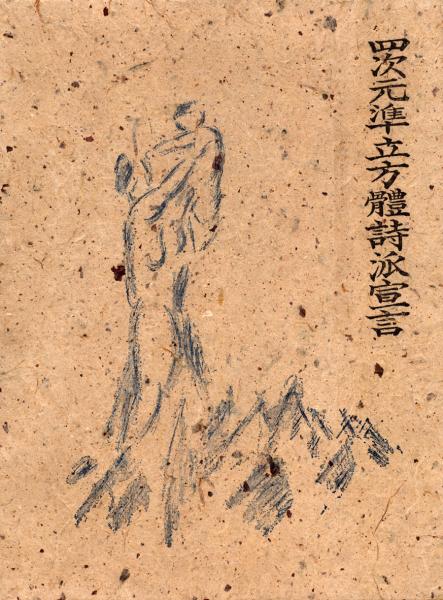 四次元準立方體詩派宣言